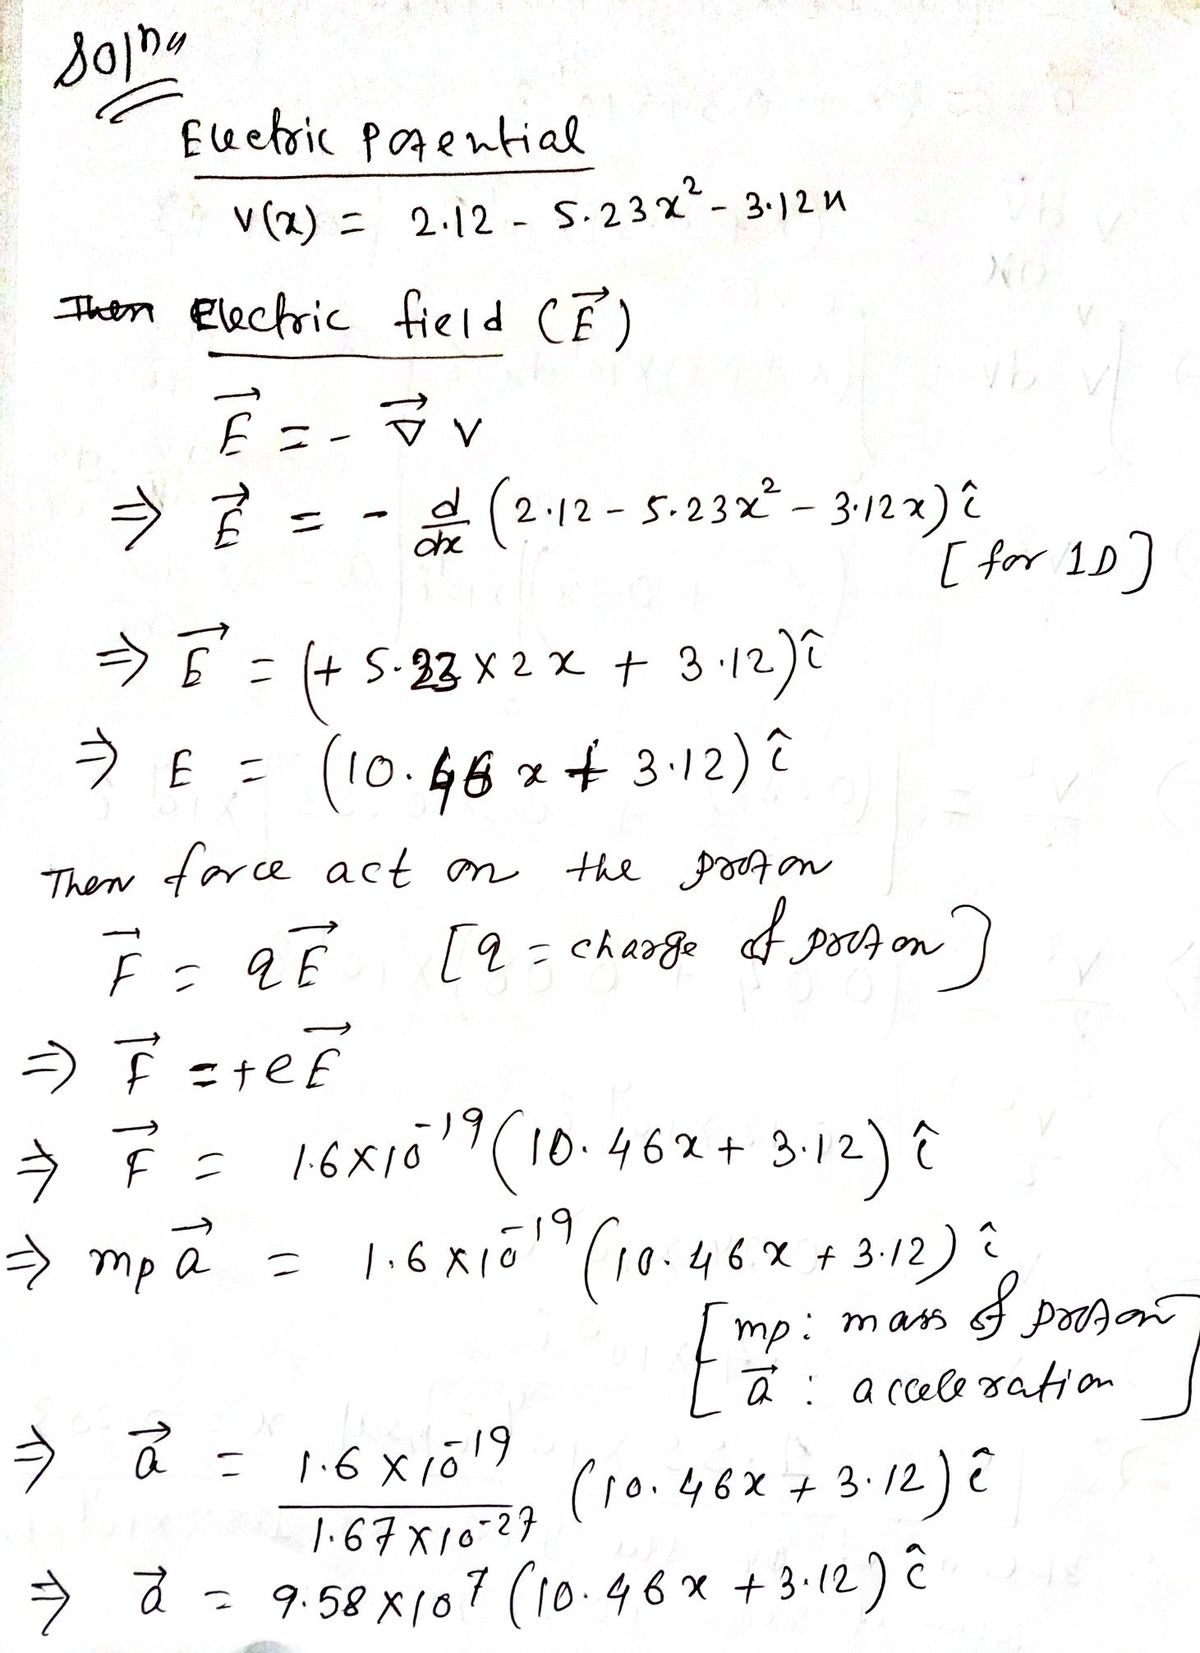 Soln
Electric Potential
V(x) = 2.12 - 5.23x² - 3.12x
Electric field (E⃗)
E⃗ = - ∇⃗ V
⇒ E⃗ = - d/dx (2.12 - 5.23x² - 3.12x) î
[for 1D]
⇒ E⃗ = (+ 5.23 × 2x + 3.12) î
⇒ E = (10.46 x + 3.12) î
Then force act on the proton
F⃗ = qE⃗ [q = charge of proton]
⇒ F⃗ = +eE⃗
⇒ F⃗ = 1.6×10⁻¹⁹ (10.46x + 3.12) î
⇒ mp a⃗ = 1.6×10⁻¹⁹ (10.46x + 3.12) î
[mp: mass of proton
a⃗ : acceleration]
⇒ a⃗ = 1.6×10⁻¹⁹ / 1.67×10⁻²⁷ (10.46x + 3.12) î
⇒ a⃗ = 9.58×10⁷ (10.46x + 3.12) î